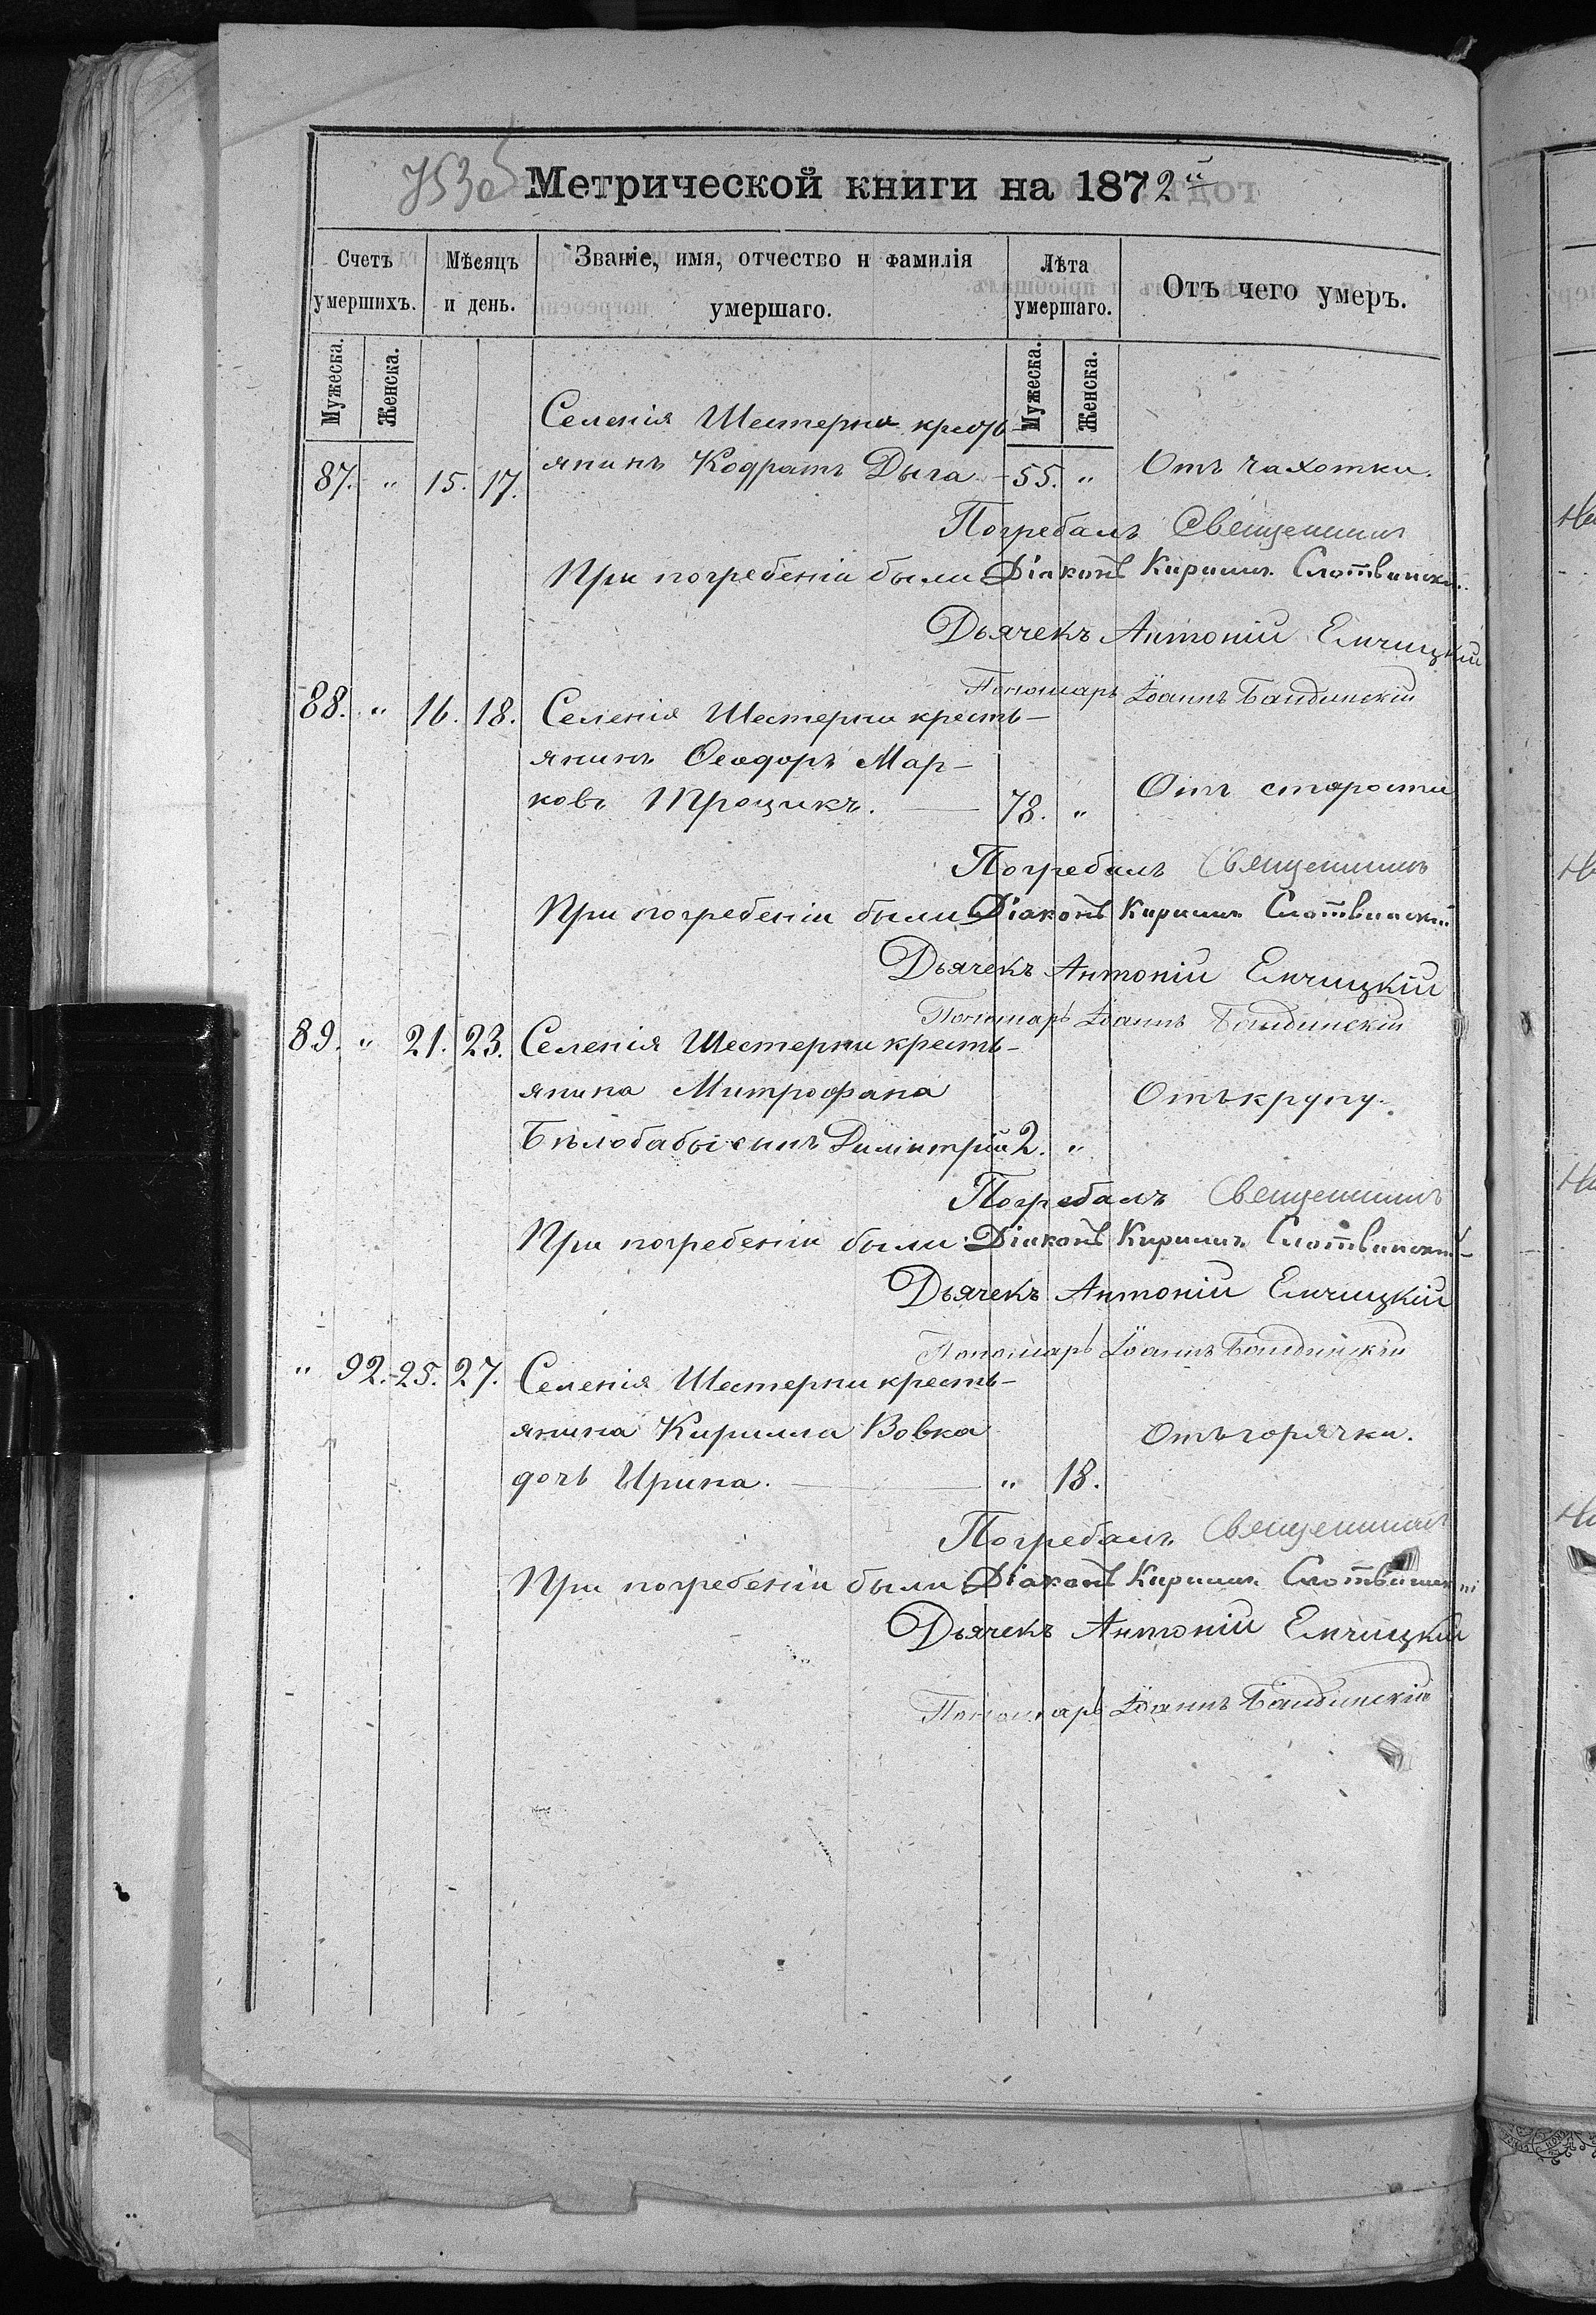 753об
Метрической книги на 1872й
Счетъ умершихъ.
Мѣсяцъ и день.
Званіе, имя, отчество и фамилія умершаго.
Лѣта умершаго.
Отъ чего умеръ.
Мужеска. Женска. Мужеска. Женска.
Селенія Шестерни кресть-
87. " 15. 17. янинъ Кодратъ Дыга - 55. " Отъ чахотки.
Погребалъ Священникъ
При погребеніи были Діаконъ Кириллъ Слотвинскій
Дьячекъ Антоній Емчицкій
Пономарь Іоаннъ Бандинскій
88. " 16. 18. Селенія Шестерни кресть-
янинъ Ѳеодоръ Мар-
ковъ Троцикъ. — 78. " Отъ старости
Погребалъ Священникъ
При погребеніи были Діаконъ Кириллъ Слотвинскій
Дьячекъ Антоній Емчицкій
Пономарь Іоаннъ Бандинскій
89. " 21. 23. Селенія Шестерни кресть-
янина Митрофана Отъ крупу.
Бѣлобабы сынъ Димитрій 2. "
Погребалъ Священникъ
При погребеніи были Діаконъ Кириллъ Слотвинскій
Дьячекъ Антоній Емчицкій
Пономарь Іоаннъ Бандинскій
" 92. 25. 27. Селенія Шестерни кресть-
янина Кирилла Вовка Отъ горячки.
дочь Ирина. — " 18.
Погребалъ Священникъ
При погребеніи были Діаконъ Кириллъ Слотвинскій
Дьячекъ Антоній Емчицкій
Пономарь Іоаннъ Бандинскій